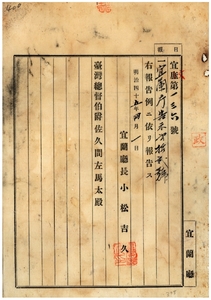 目
報
宜庶第一三六號
一宜蘭廳告示第拾貳號
右報告例ニ依リ報告ス
明治四十五年四月一日
宜蘭廳長 小松吉久
臺灣總督伯爵佐久間左馬太殿
宜蘭廳